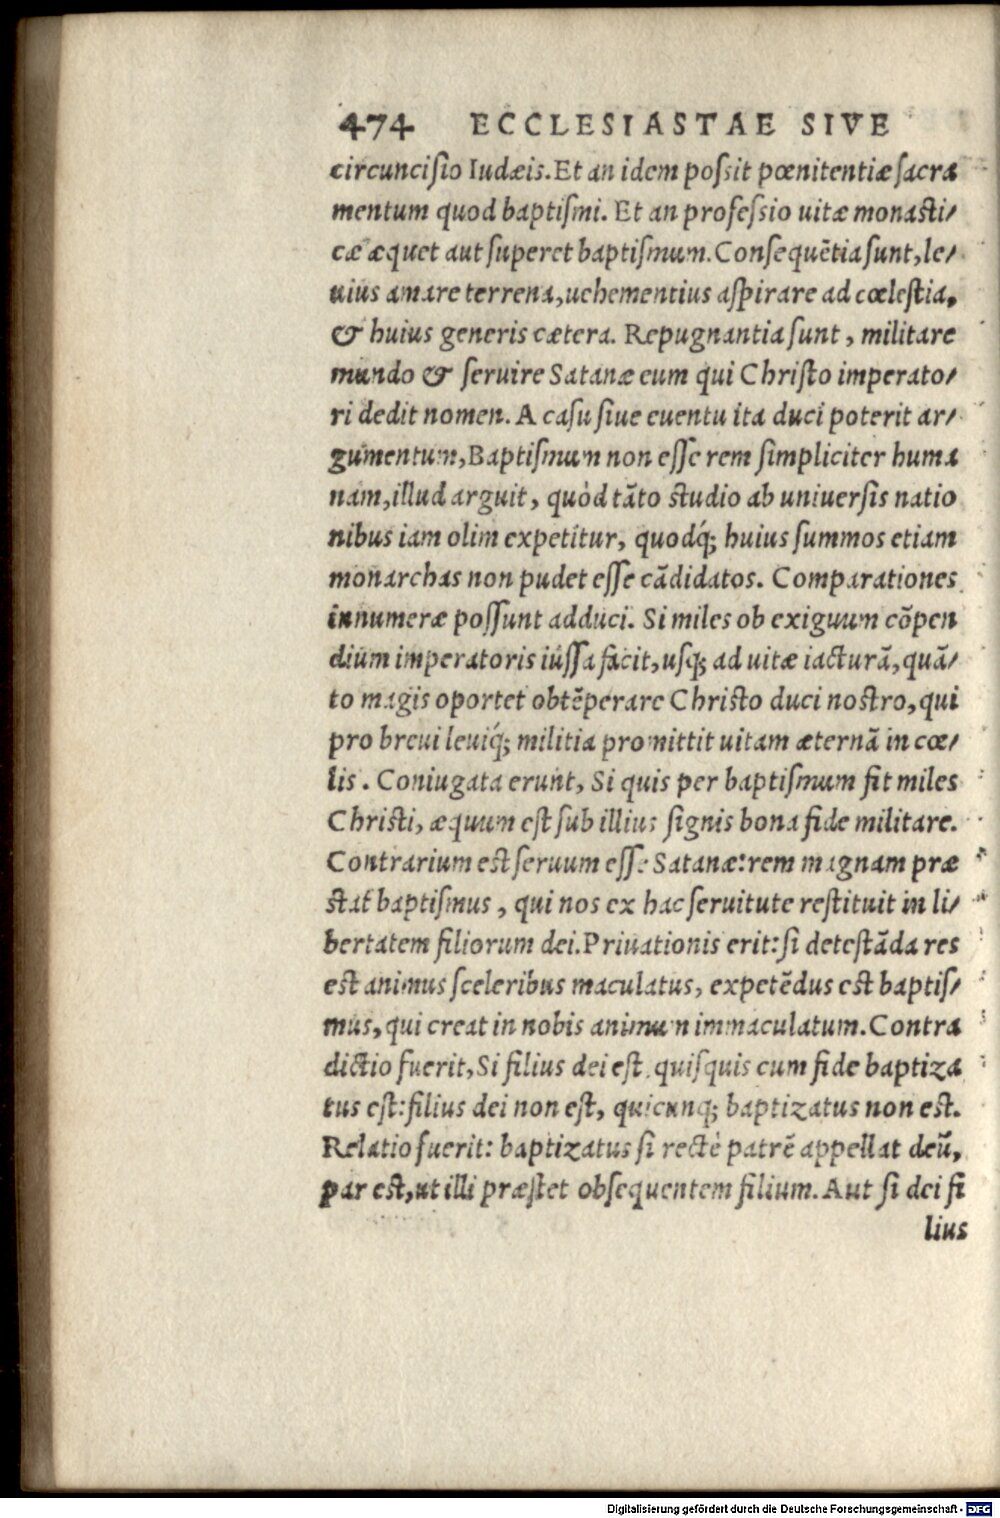 474 ECCLESIASTAE SIVE
circuncisio Iudæis. Et an idem possit pœnitentiæ sacra
mentum quod baptismi. Et an professio uitæ monasti/
cæ æquet aut superet baptismum. Consequẽtia sunt, le/
uius amare terrena, uehementius aspirare ad cœlestia,
& huius generis cætera. Repugnantia sunt, militare
mundo & seruire Satanæ eum qui Christo imperato/
ri dedit nomen. A casu siue euentu ita duci poterit ar/
gumentum, Baptismum non esse rem simpliciter huma
nam, illud arguit, quòd tãto studio ab uniuersis natio
nibus iam olim expetitur, quodq́; huius summos etiam
monarchas non pudet esse cãdidatos. Comparationes
innumeræ possunt adduci. Si miles ob exiguum cõpen
dium imperatoris iussa facit, usq; ad uitæ iacturã, quã/
to magis oportet obtẽperare Christo duci nostro, qui
pro breui leuiq́; militia promittit uitam æternã in cœ/
lis. Coniugata erunt, Si quis per baptismum fit miles
Christi, æquum est sub illius signis bona fide militare.
Contrarium est seruum esse Satanæ: rem magnam præ
stat baptismus, qui nos ex hac seruitute restituit in li/
bertatem filiorum dei. Priuationis erit: si detestãda res
est animus sceleribus maculatus, expetẽdus est baptis/
mus, qui creat in nobis animum immaculatum. Contra
dictio fuerit, Si filius dei est quisquis cum fide baptiza
tus est: filius dei non est, quicunq; baptizatus non est.
Relatio fuerit: baptizatus si rectè patrẽ appellat deũ,
par est, ut illi præstet obsequentem filium. Aut si dei fi
lius
Digitalisierung gefördert durch die Deutsche Forschungsgemeinschaft - DFG